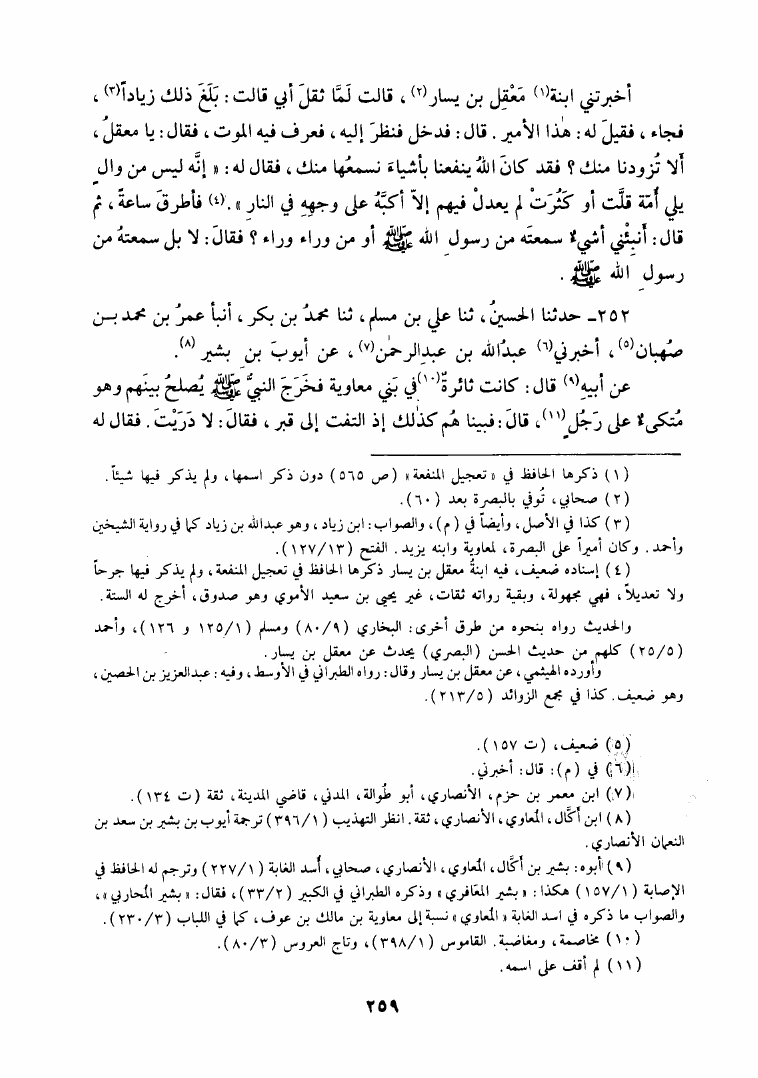 أخبرتني ابنة(١) مَعْقِل بن يسار(٢) ، قالت لَمَّا ثقلَ أبي قالت : بَلَغَ ذلك زياداً(٣) ،
فجاء ، فقيلَ له : هٰذا الأمير . قال : فدخل فنظرَ إليه ، فعرف فيه الموت ، فقال : يا معقلُ ،
ألا تُزودنا منك ؟ فقد كانَ اللهُ ينفعنا بأشياءَ نسمعُها منك ، فقال له : « إنَّه ليس من والٍ
يلي أُمّة قلَّت أو كَثُرَتْ لم يعدلْ فيهم إلاّ أكبَّهُ على وجهِهِ في النارِ » .(٤) فأطرقَ ساعةً ، ثم
قال : أَنبِئْني أشيءٌ سمعتَه من رسولِ الله ﷺ أو من وراء وراء ؟ فقالَ : لا بل سمعتهُ من
رسولِ الله ﷺ .
٢٥٢ـ حدثنا الحسينُ ، ثنا علي بن مسلم ، ثنا محمدُ بن بكر ، أنبأ عمرُ بن محمد بـن
صُهبان(٥) ، أخبرني(٦) عبدُالله بن عبدالرحمٰن(٧) ، عن أيوبَ بنِ بشير(٨).
عن أبيهِ(٩) قال : كانت ثائرةٌ(١٠)في بَني معاوية فخَرَجَ النبيُّ ﷺ يُصلحُ بينَهم وهو
مُتكىءٌ على رَجُلٍ(١١)، قالَ : فبينا هُم كذٰلك إذ التفت إلى قبر ، فقالَ : لا دَرَيْتَ . فقال له
(١) ذكرها الحافظ في « تعجيل المنفعة » (ص ٥٦٥) دون ذكر اسمها، ولم يذكر فيها شيئاً.
(٢) صحابي، تُوفي بالبصرة بعد (٦٠).
(٣) كذا في الأصل، وأيضاً في (م)، والصواب: ابن زياد، وهو عبدالله بن زياد كما في رواية الشيخين
وأحمد. وكان أميراً على البصرة، لمعاوية وابنه يزيد. الفتح (١٢٧/١٣).
(٤) إسناده ضعيف، فيه ابنةُ معقل بن يسار ذكرها الحافظ في تعجيل المنفعة، ولم يذكر فيها جرحاً
ولا تعديلاً، فهي مجهولة، وبقية رواته ثقات، غير يحيى بن سعيد الأموي وهو صدوق، أخرج له الستة.
والحديث رواه بنحوه من طرق أخرى: البخاري (٨٠/٩) ومسلم (١٢٥/١ و ١٢٦)، وأحمد
(٢٥/٥) كلهم من حديث الحسن (البصري) يحدث عن معقل بن يسار.
وأورده الهيثمي، عن معقل بن يسار وقال: رواه الطبراني في الأوسط، وفيه: عبدالعزيز بن الحصين،
وهو ضعيف. كذا في مجمع الزوائد (٢١٣/٥).
(٥) ضعيف، (ت ١٥٧).
(٦) في (م): قال: أخبرني.
(٧) ابن معمر بن حزم، الأنصاري، أبو طُوالة، المدني، قاضي المدينة، ثقة (ت ١٣٤).
(٨) ابن أكَّال، المُعاوي، الأنصاري، ثقة. انظر التهذيب (٣٩٦/١) ترجمة أيوب بن بشير بن سعد بن
النعمان الأنصاري.
(٩) أبوه: بشير بن أكَّال، المُعاوي، الأنصاري، صحابي، أُسد الغابة (٢٢٧/١) وترجم له الحافظ في
الإصابة (١٥٧/١) هكذا: « بشير المَعَافري » وذكره الطبراني في الكبير (٣٣/٢)، فقال: « بشير المُحاربي »،
والصواب ما ذكره في اسد الغابة « المُعاوي » نسبة إلى معاوية بن مالك بن عوف، كما في اللباب (٢٣٠/٣).
(١٠) مخاصمة، ومغاضبة. القاموس (٣٩٨/١)، وتاج العروس (٨٠/٣).
(١١) لم أقف على اسمه.
٢٥٩